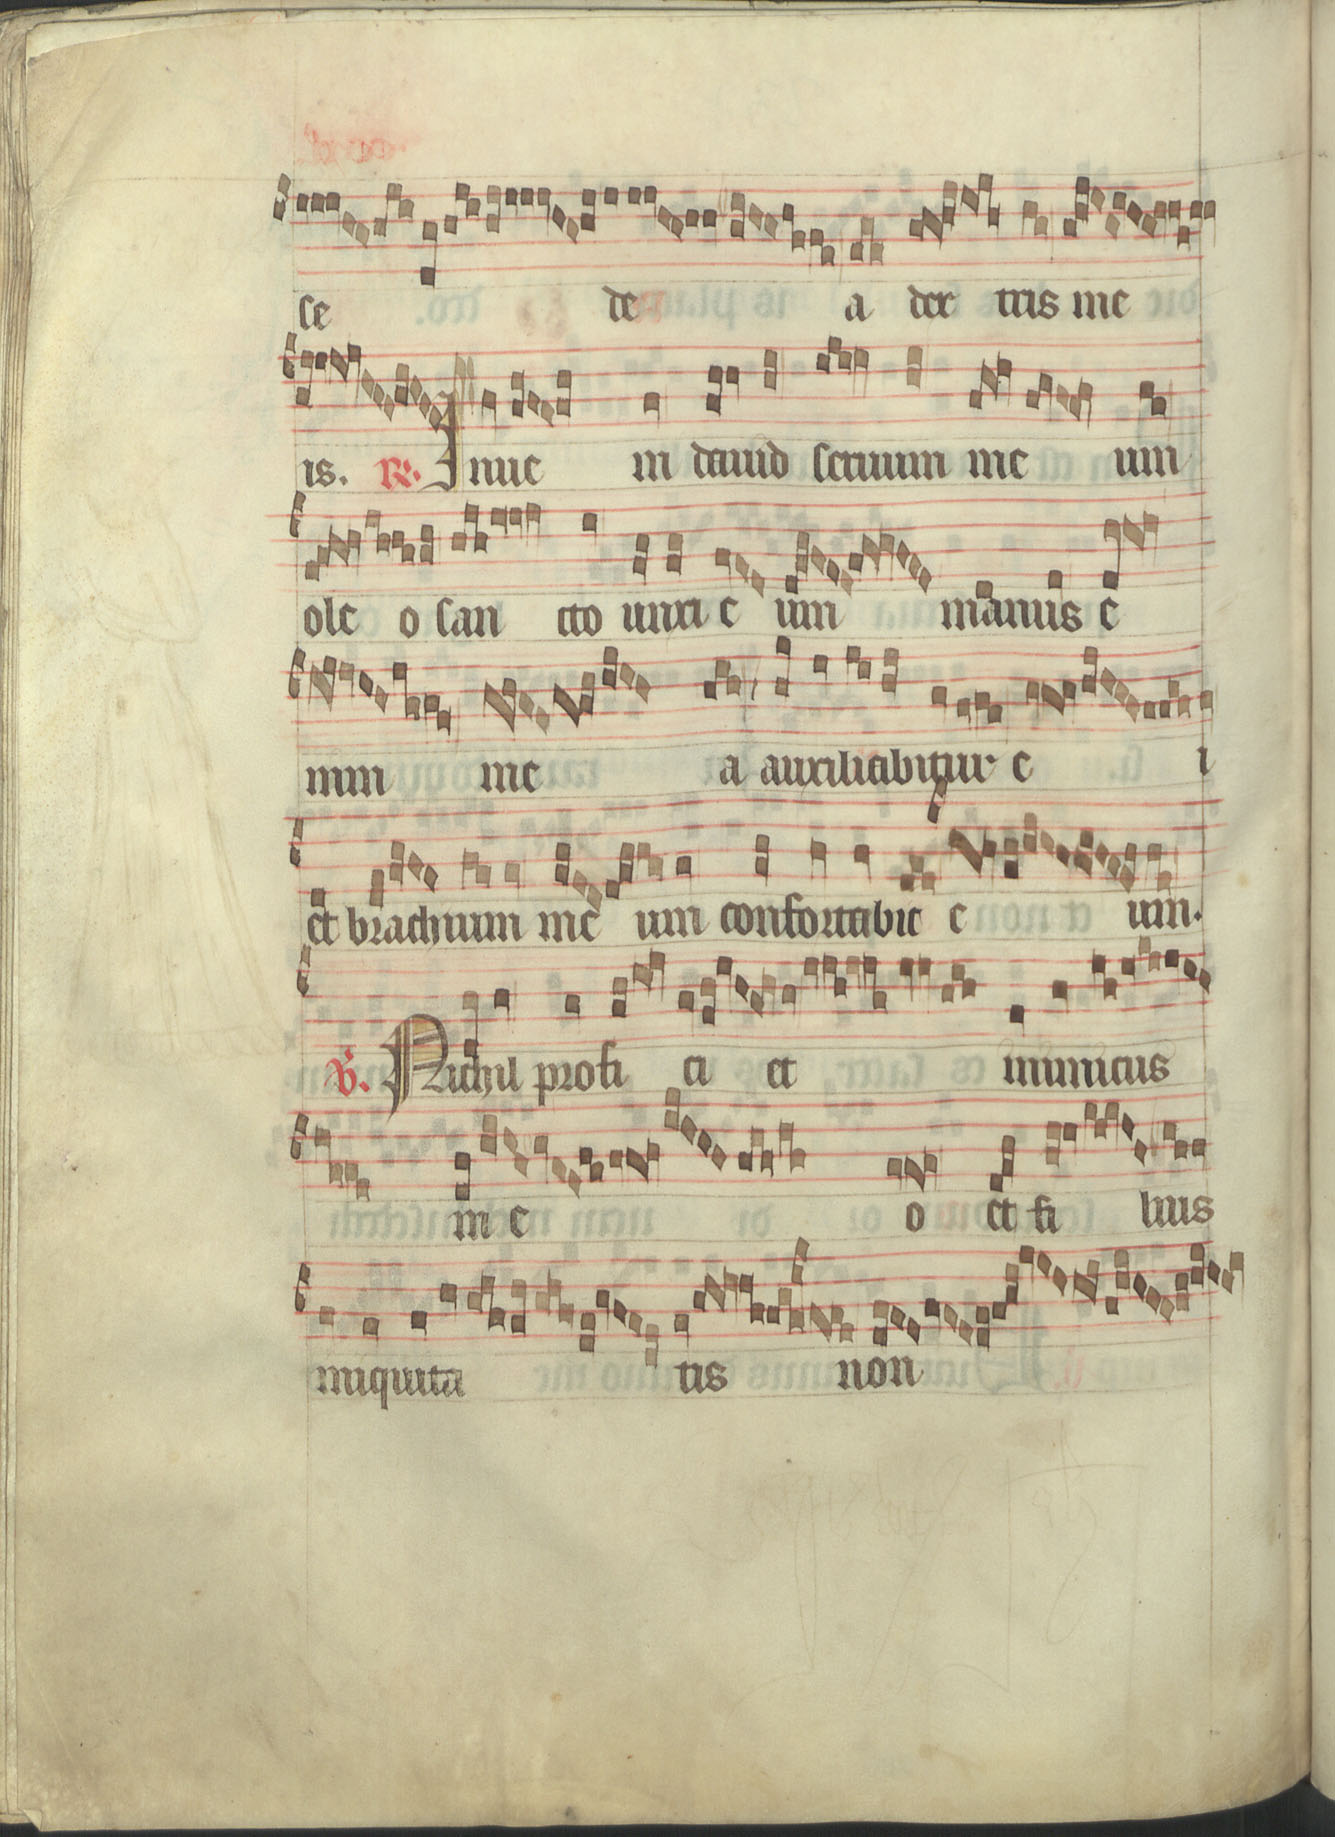 se de a dex tris me
is. R. Inue ni dauid seruum me um
ole o san cto unxi e um manus e
nim me a auxiliabitur e i
et brachium me um confortabit e um.
V. Nichil profi ci et inimicus
in e o et fi lius
iniquita tis non